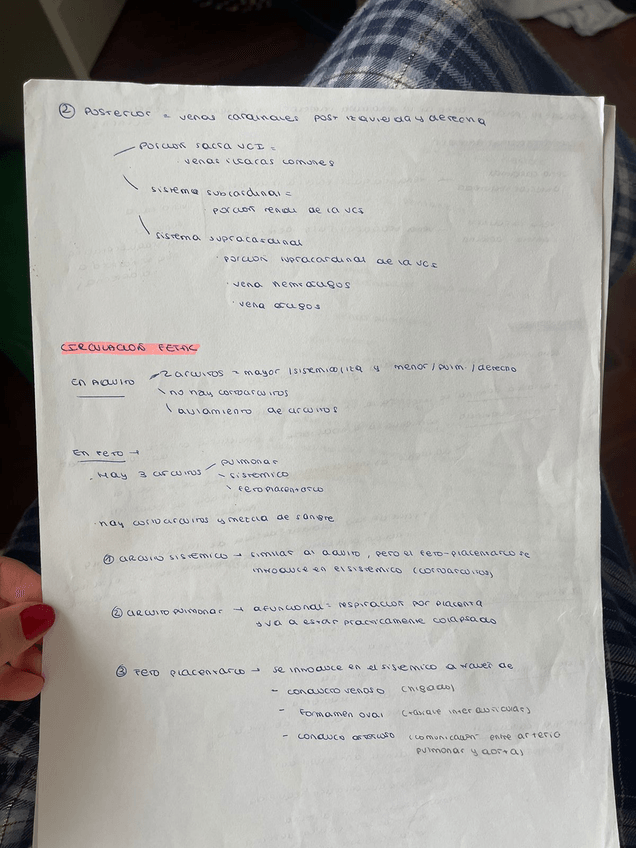 ② Posterior = venas cardinales post izquierda y derecha
porción sacra VCI =
venas iliacas comunes
sistema subcardinal =
porción renal de la VCI
sistema supracardinal
· porción supracardinal de la VCI
· vena hemiacigos
· vena acigos
CIRCULACIÓN FETAL
En adulto
2 circuitos = mayor / sistemico / izq y menor / pulm / derecho
no hay cortocircuitos
aislamiento de circuitos
En feto →
. Hay 3 circuitos
pulmonar
sistemico
feroplacentario
. hay cortocircuitos y mezcla de sangre
① circuito sistemico → similar al adulto, pero el feto-placentario se
introduce en el sistemico (cortocircuitos)
② circuito pulmonar → afuncional = respiración por placenta
y va a estar prácticamente colapsado
③ Feto placentario → se introduce en el sistemico a traves de
- conducto venoso (higado)
- formamen oval (tabique interauricular)
- conducto arterioso (comunicación entre arteria
pulmonar y aorta)